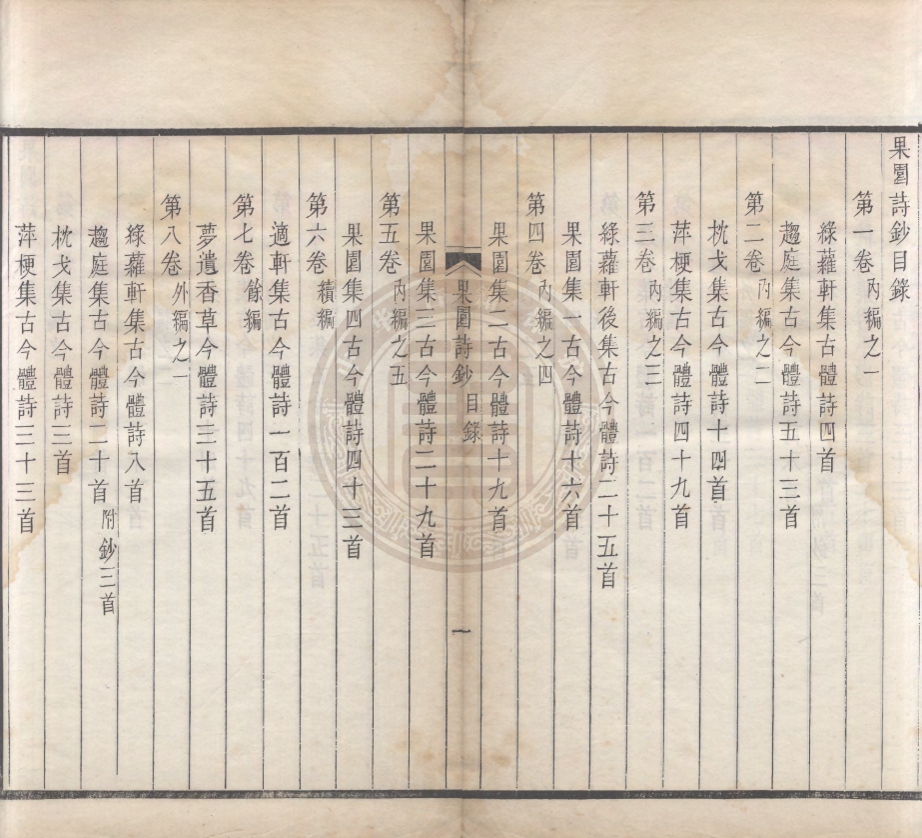 果園詩鈔目錄
第一卷 內編之一
綠蘿軒集古今體詩四首
趨庭集古今體詩五十三首
第二卷 內編之二
枕戈集古今體詩十四首
萍梗集古今體詩四十九首
第三卷 內編之三
綠蘿軒後集古今體詩二十五首
果園集一古今體詩十六首
第四卷 內編之四
果園集二古今體詩十九首
果園詩鈔 目錄 一
果園集三古今體詩二十九首
第五卷 內編之五
果園集四古今體詩四十三首
第六卷 續編
適軒集古今體詩一百二首
第七卷 餘編
夢遺香草今體詩三十五首
第八卷 外編之一
綠蘿軒集古今體詩八首
趨庭集古今體詩二十首 附鈔三首
枕戈集古今體詩三首
萍梗集古今體詩三十三首